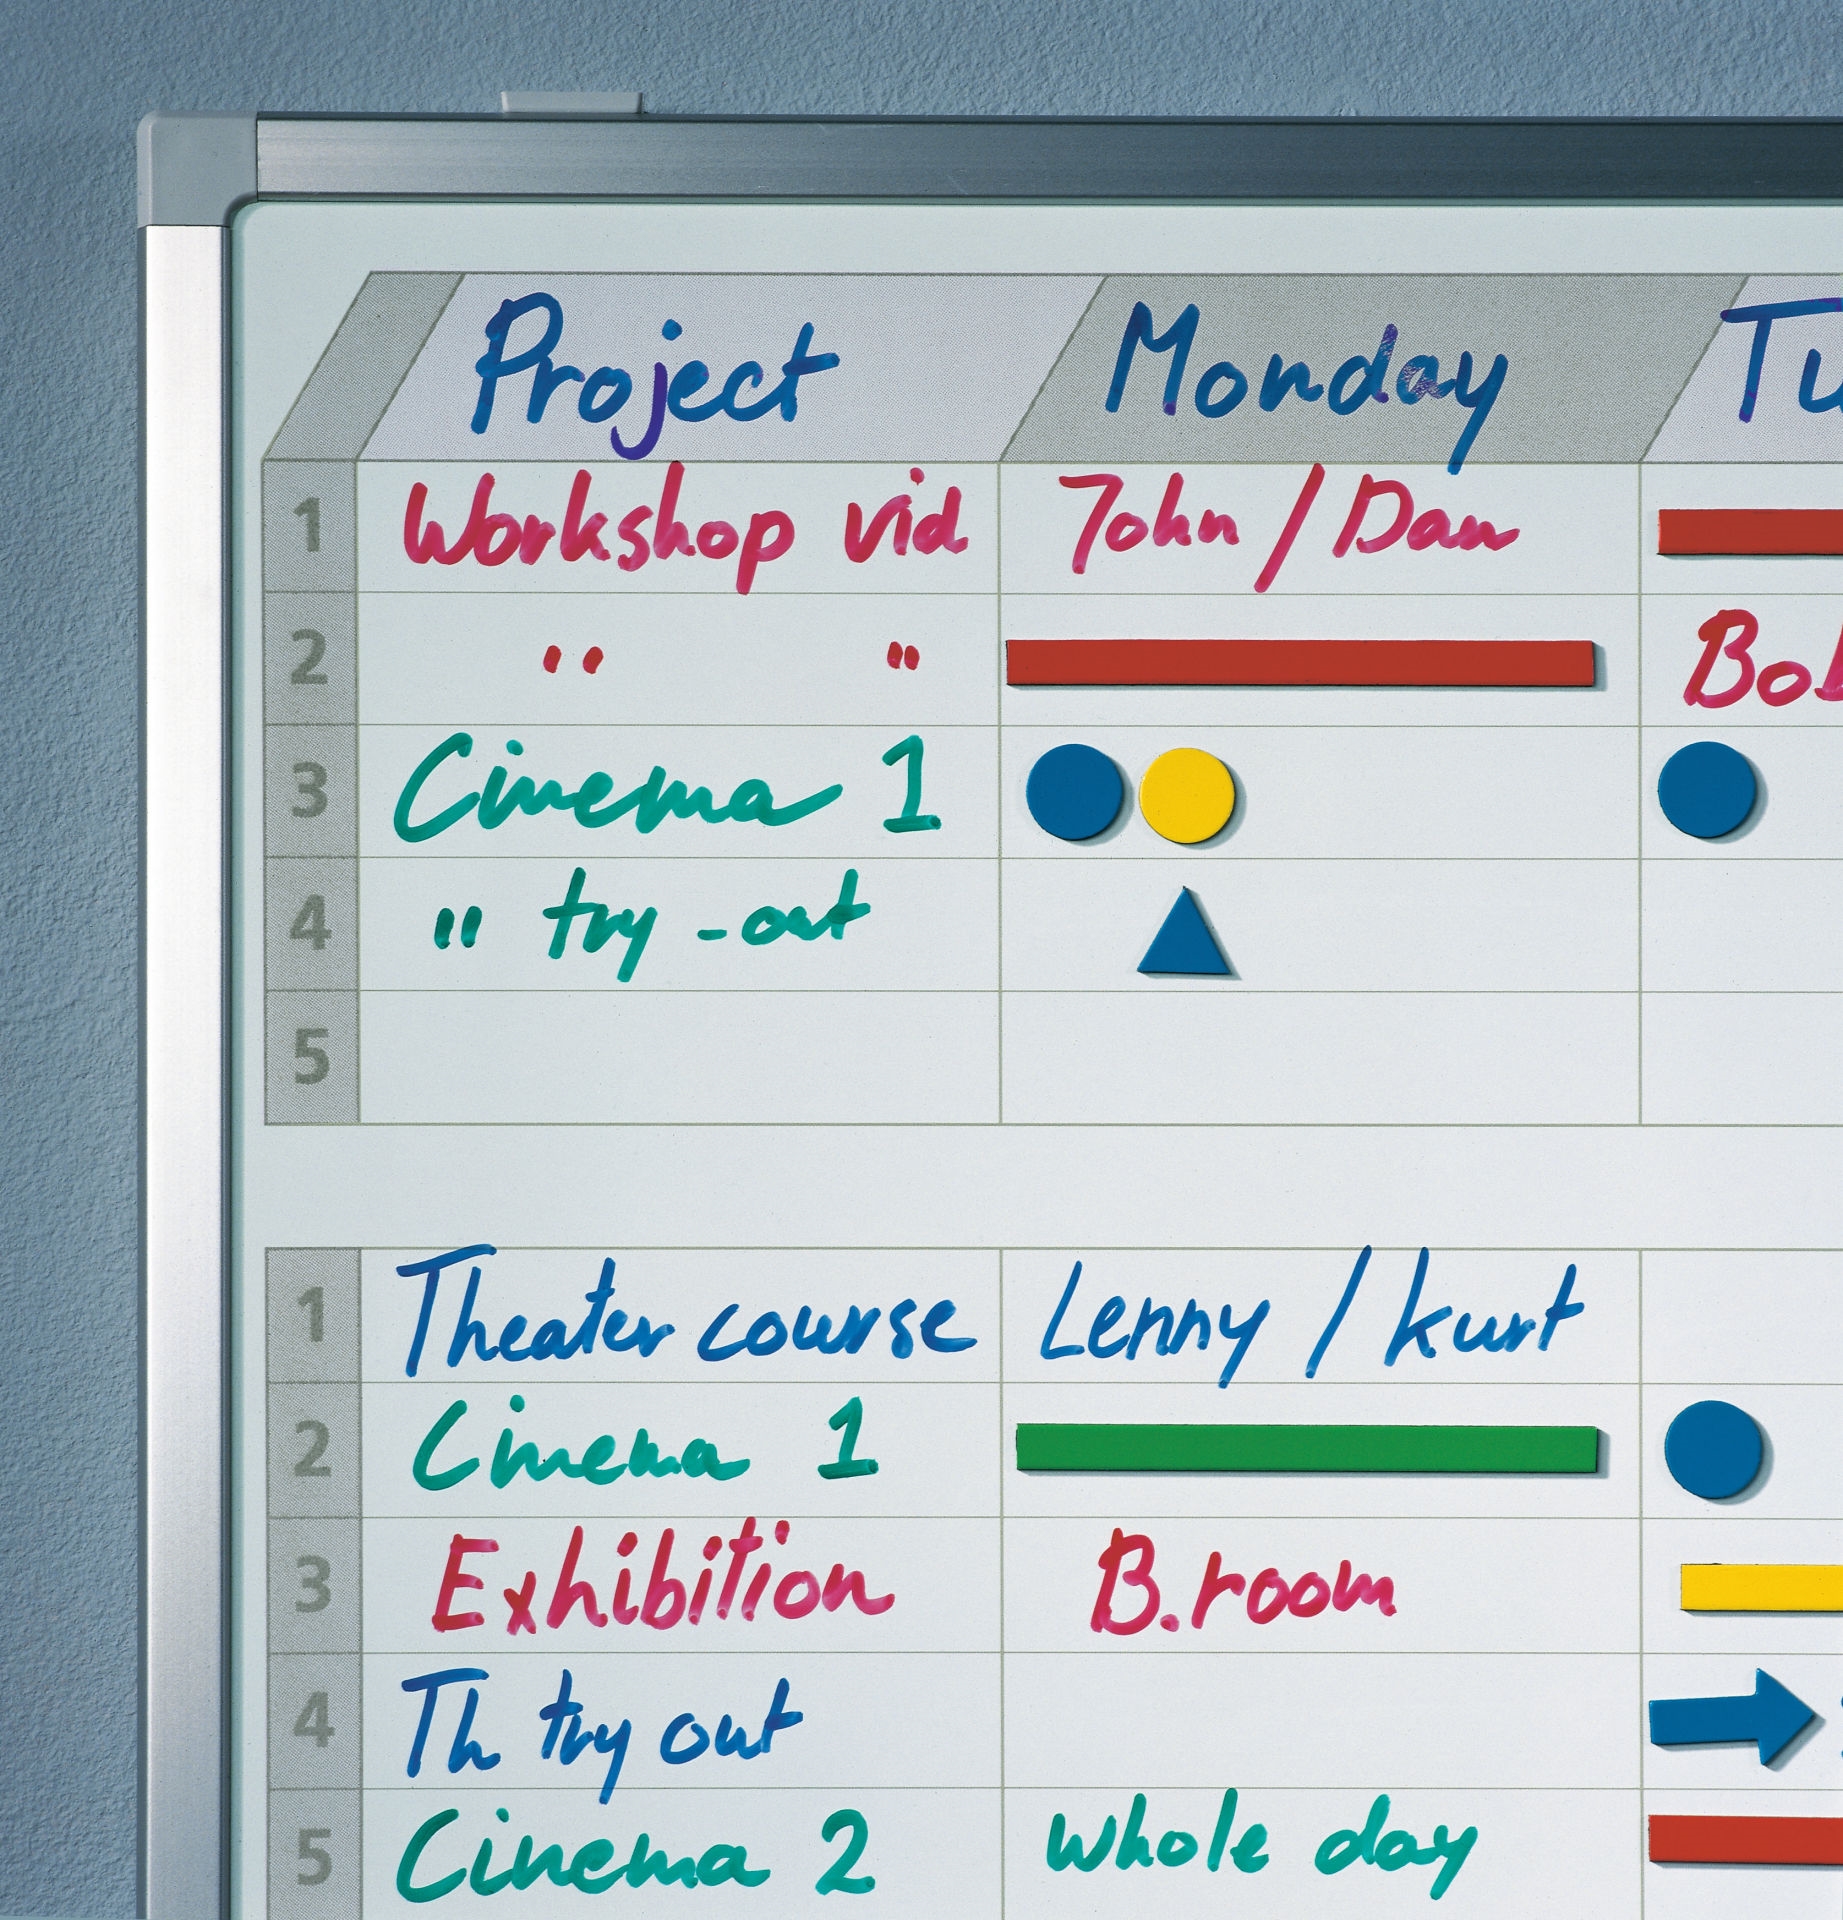 Project Monday Tu
1 Workshop vid John / Dan
2 " " Bob
3 Cinema 1
4 " try-out
5
1 Theater course Lenny / kurt
2 Cinema 1
3 Exhibition B.room
4 Th try out
5 Cinema 2 whole day